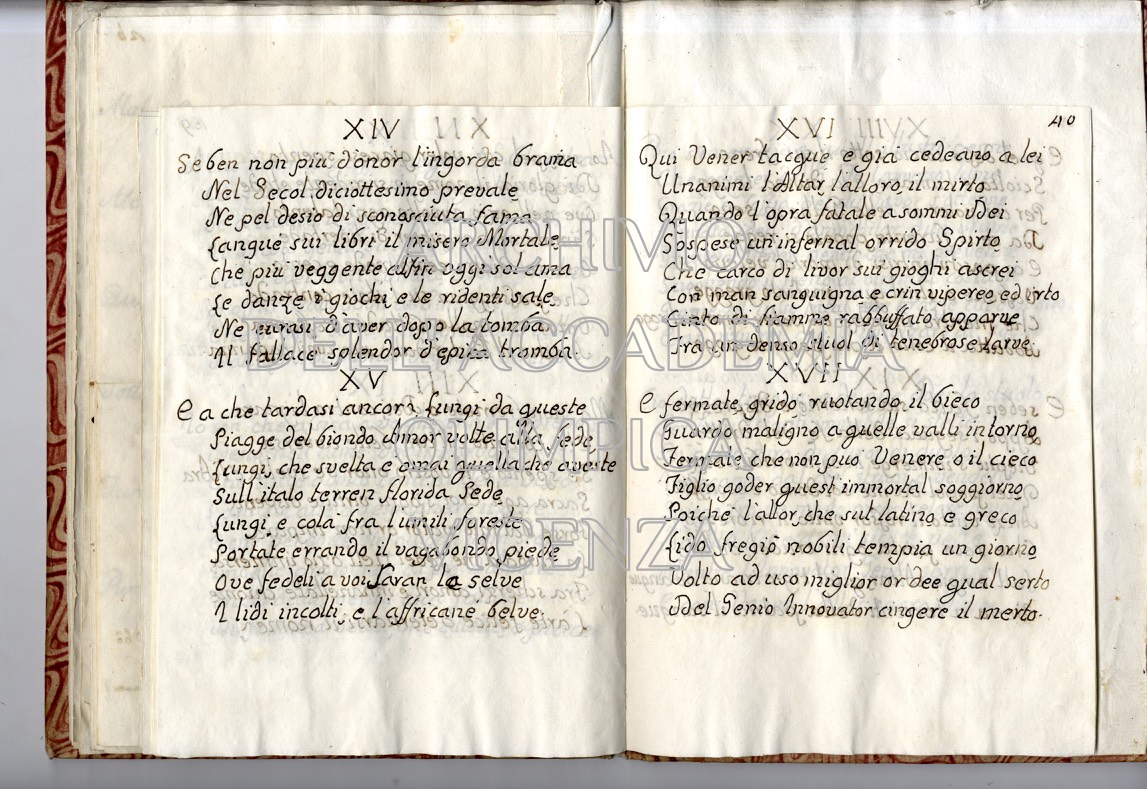 XIV
Se ben non più d'onor l'ingorda brama
Nel Secol diciottesimo prevale
Ne pel desio di sconosciuta fama
Langue sui libri il misero Mortale
Che più veggente alfin oggi sol ama
Le danze i giochi e le ridenti sale
Ne curasi d'aver dopo la tomba
Il fallace splendor d'epica tromba.
XV
E a che tardasi ancor? Lungi da queste
Piagge del biondo Amor volte alla fede
Lungi, che svelta e omai quella che aveste
Sull italo terren florida Sede
Lungi e colà fra l'umili foreste
Portate errando il vagabondo piede
Ove fedeli a voi saran le selve
I lidi incolti, e l'affricane belve.
40
XVI
Qui Vener tacque e già cedeano a lei
Unanimi l'Altar, l'alloro, il mirto
Quando l'opra fatale a sommi Dei
Sospese un'infernal orrido Spirto
Che carco di livor sui gioghi ascrei
Con man sanguigna e crin vipereo ed irto
Cinto di fiamme rabbuffato apparve
Fra un denso stuol di tenebrose larve.
XVII
E fermate gridò ruotando il bieco
Guardo maligno a quelle valli intorno
Fermate che non può Venere o il cieco
Figlio goder quest immortal soggiorno
Poiche l'allor, che sul latino e greco
Lido fregiò nobili tempia un giorno
Volto ad uso miglior or dee qual serto
Del Genio Innovator cingere il merto.
ARCHIVIO
DELL'ACCADEMIA
OLIMPICA
VICENZA